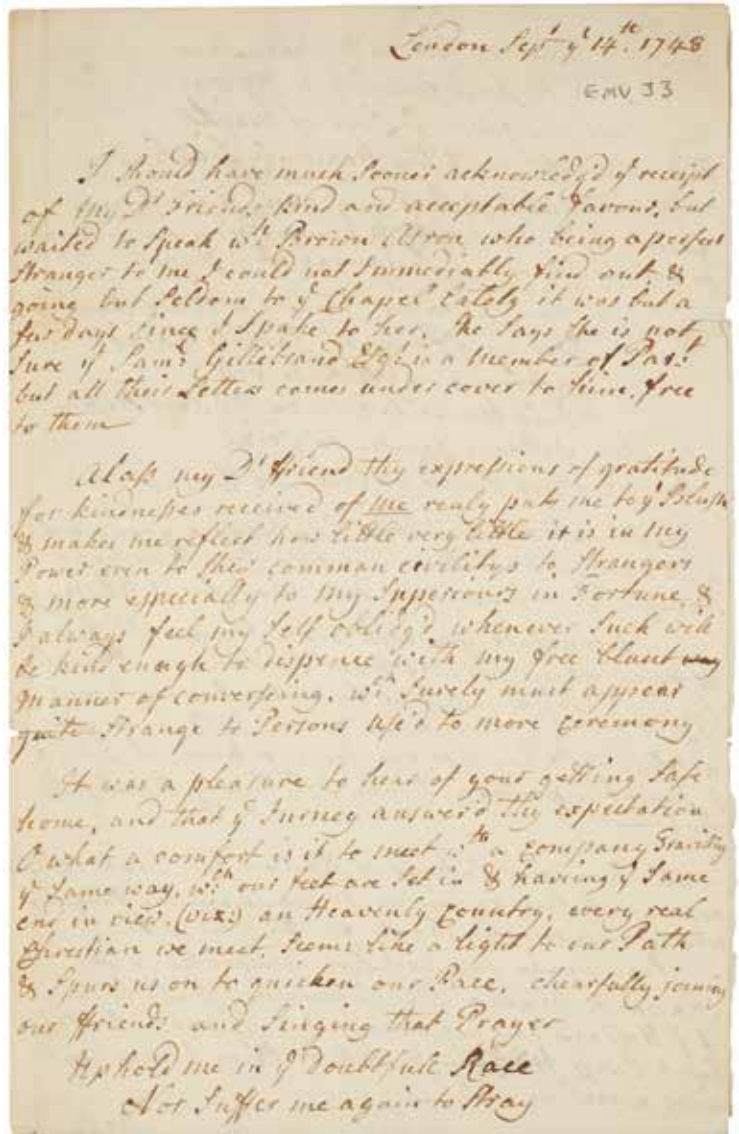 London Sept ye 14th. 1748
EMV. J3
I Should have much Sooner acknowledg'd ye receipt
of my Dr Friends kind and acceptable favour, but
waited to Speak wth who being a perfect
Stranger to me I could not Immediatly find out &
going but Seldom to ye Chapel Lately it was but a
few days Since I Spake to her. She Says She is not
Sure if Saml Gillibrand Esqr is a Member of Par:
but all their Letters comes under cover to him, free
to them
Alass my Dr ffriend thy expressions of gratitude
for kindnesses received of me realy puts me to ye Blush
& makes me reflect how little very little it is in my
Power even to Shew common civilitys to Strangers
& more especially to my Supperiours in Fortune, &
I always feel my Self oblig'd whenever Such will
be kind enugh to dispence with my free blunt way
Manner of converssing, wch Surely must appear
quite Strange to Persons Us'd to more ceremony
It was a pleasure to hear of your getting Safe
home, and that ye Jurney answer'd thy expectation
O what a comfort is it to meet wth a company
ye Same way, wch our feet are Set in & having ye Same
end in view. (viz:) an Heavenly Country, every real
Christian we meet, Seems like a light to our Path
& Spurs us on to quicken our Race, chearfully joining
our ffriends and Singing that Prayer
Uphold me in ye Doubtfull Race
Nor Suffer me again to Stray